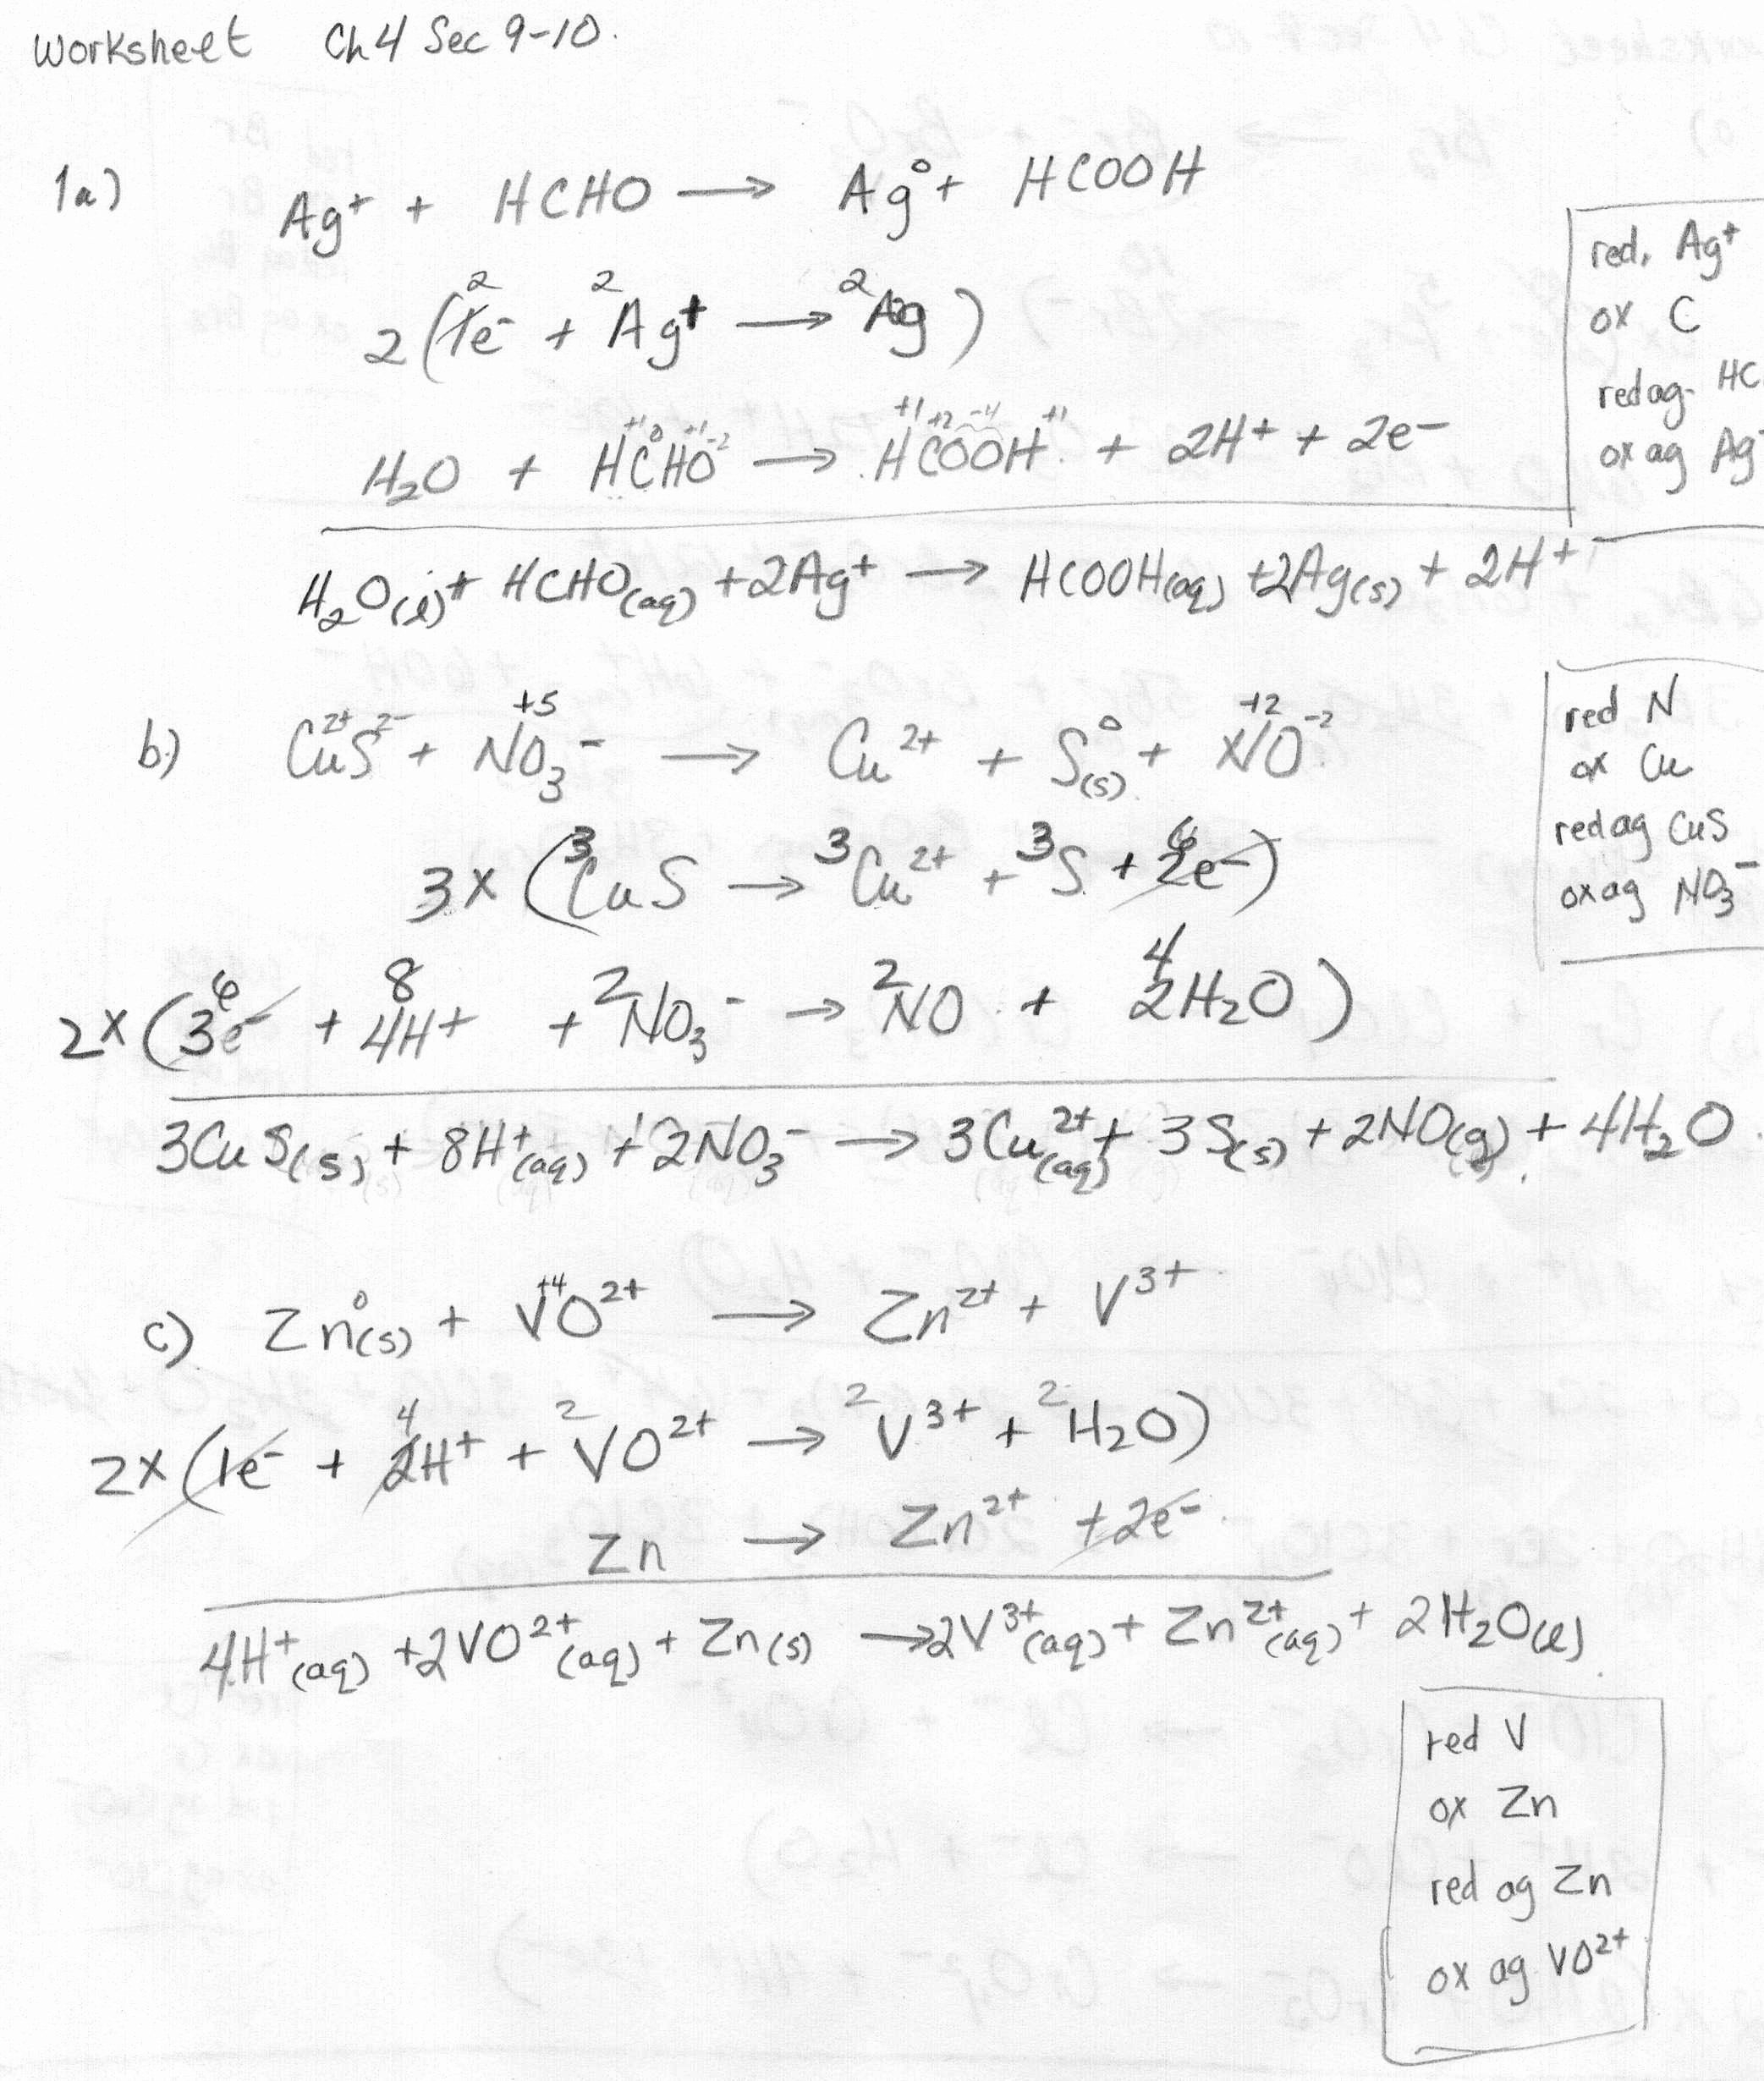 Worksheet Ch 4 Sec 9-10.
1a)
Ag⁺ + HCHO → Ag⁰ + HCOOH
2 2 2
2(1e⁻ + Ag⁺ → Ag)
+1 0 +1 -2 +1 +2 -4 +1
H₂O + HCHO → HCOOH + 2H⁺ + 2e⁻
H₂O(l) + HCHO(aq) + 2Ag⁺ → HCOOH(aq) + 2Ag(s) + 2H⁺
red. Ag⁺
ox C
red ag. HC
ox ag Ag
+5 +2
b) Cu²⁺S²⁻ + NO₃⁻ → Cu²⁺ + S⁰(s) + NO⁻²
3 3 3 6
3x (CuS → Cu²⁺ + S + 2e⁻)
6 8 2 2 4
2x (3e⁻ + 4H⁺ + NO₃⁻ → NO + 2H₂O)
3CuS(s) + 8H⁺(aq) + 2NO₃⁻ → 3Cu²⁺(aq) + 3S(s) + 2NO(g) + 4H₂O
red N
ox Cu
red ag CuS
ox ag NO₃⁻
+4
c) Zn⁰(s) + VO²⁺ → Zn²⁺ + V³⁺
4 2 2 2
2x (1e⁻ + 2H⁺ + VO²⁺ → V³⁺ + H₂O)
Zn → Zn²⁺ + 2e⁻
4H⁺(aq) + 2VO²⁺(aq) + Zn(s) → 2V³⁺(aq) + Zn²⁺(aq) + 2H₂O(l)
red V
ox Zn
red ag Zn
ox ag VO²⁺